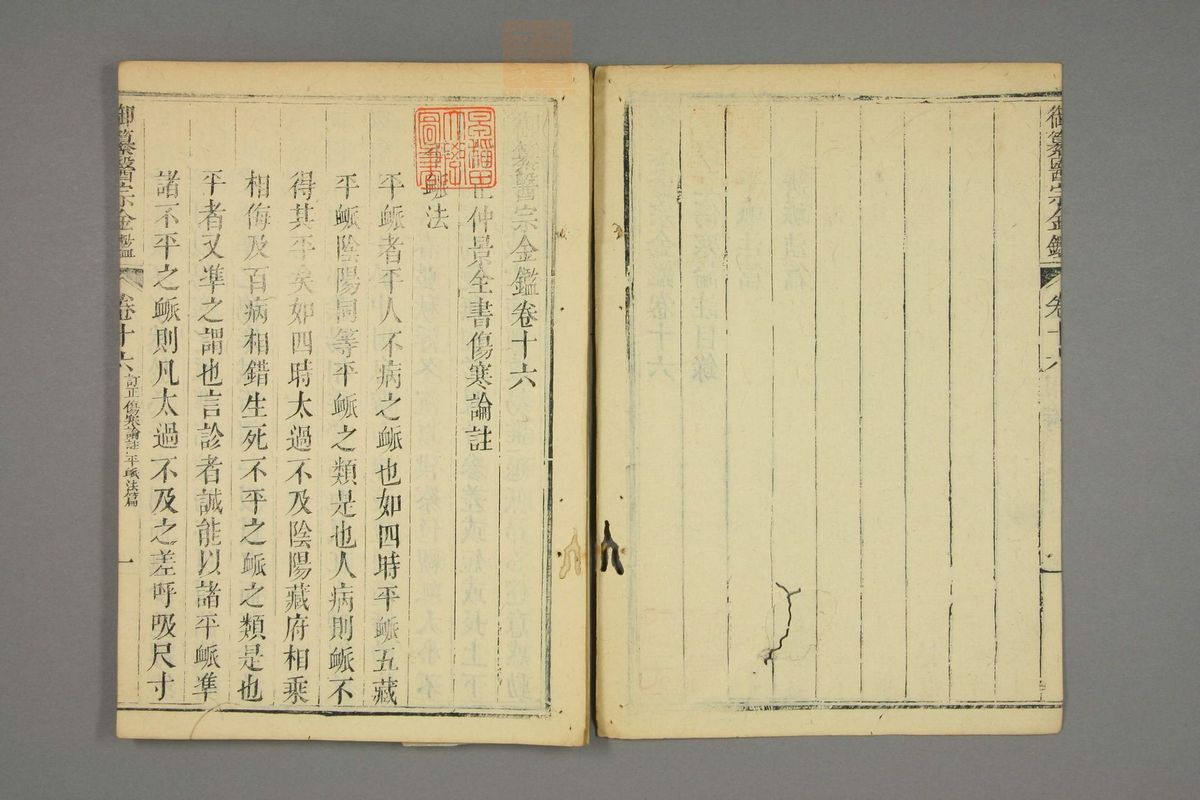 御纂醫宗金鑑 卷十六
纂醫宗金鑑卷十六
正仲景全書傷寒論註
平䘑法
平䘑者平人不病之䘑也如四時平䘑五藏
平䘑陰陽同等平䘑之類是也人病則䘑不
得其平矣如四時太過不及陰陽藏府相乘
相侮及百病相錯生死不平之䘑之類是也
平者又準之謂也言診者誠能以諸平䘑準
諸不平之䘑則凡太過不及之差呼吸尺寸
御纂醫宗金鑑 卷十六 訂正傷寒論註 平䘑法篇 一